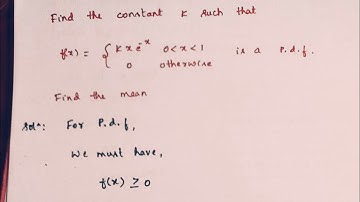 Find the constant K such that
f(x) = { K x e^-x 0<x<1 is a p.d.f.
0 otherwise
Find the mean
Solⁿ: For P.d.f,
We must have,
f(x) ≥ 0